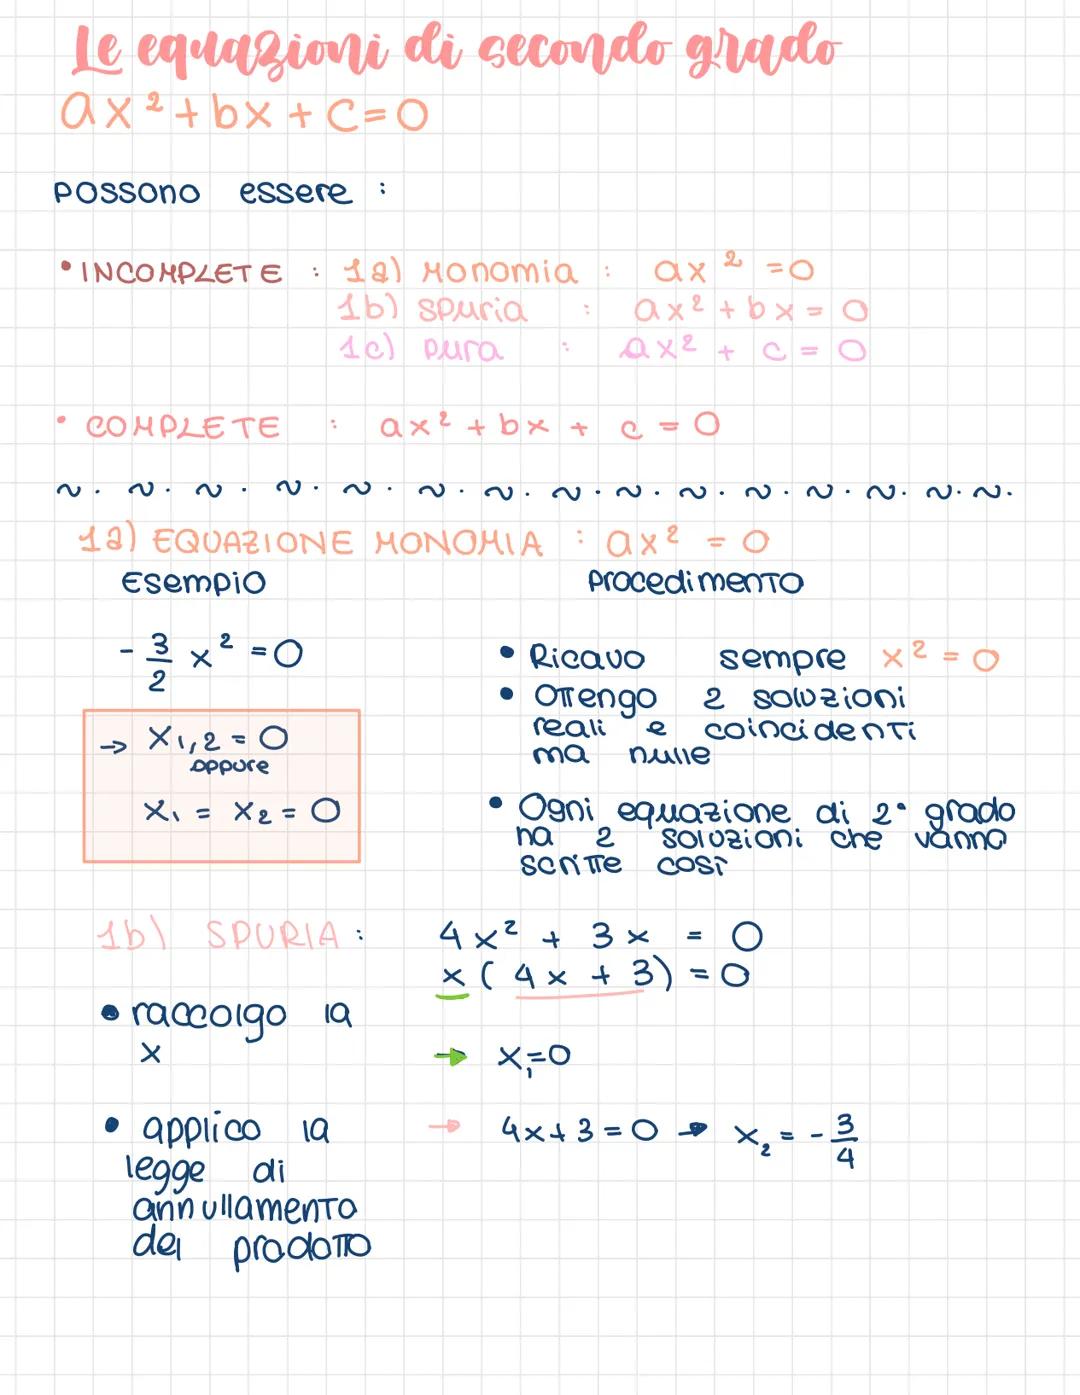 Le equazioni di secondo grado
ax² + bx + c = 0
possono essere :
• INCOMPLETE : 1a) Monomia : ax² = 0
1b) spuria : ax² + bx = 0
1c) pura : ax² + c = 0
• COMPLETE : ax² + bx + c = 0
~ · ~ · ~ · ~ · ~ · ~ · ~ · ~ · ~ · ~ · ~ · ~ · ~ · ~ · ~ ·
1a) EQUAZIONE MONOMIA : ax² = 0
Esempio
- 3/2 x² = 0
→ x₁,₂ = 0
oppure
x₁ = x₂ = 0
procedimento
• Ricavo sempre x² = 0
• Ottengo 2 soluzioni
reali e coincidenti
ma nulle
• Ogni equazione di 2° grado
ha 2 soluzioni che vanno
scritte così
1b) SPURIA :
4x² + 3x = 0
x ( 4x + 3 ) = 0
• raccolgo la
x
→ x₁=0
• applico la
legge di
annullamento
del prodotto
→ 4x+3=0 → x₂ = - 3/4